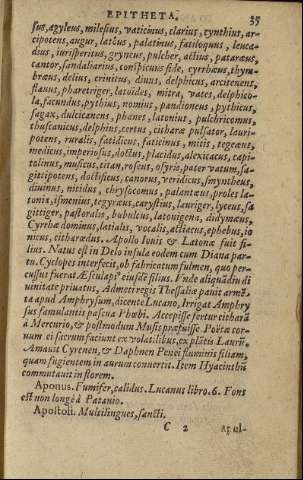 EPITHETA. 35
sus, agyleus, milesius, vaticinus, clarius, cynthius, ar-
cipotens, augur, latius, palatinus, fatiloquus, leuca-
dius, iurisperitus, gryneus, pulcher, actius, pataræus,
cantor, sandaliarius, conspicuus fide, cyrrhæus, thym-
bræus, delius, crinitus, diuus, delphicus, arcitenens,
flauus, pharetriger, latoides, mitra, vates, delphico-
la, facundus, pythius, nomius, pandioneus, pythicus,
sagax, dulcicanens, phanes, latonius, pulchricomus,
thuscanicus, delphins, certus, citharæ pulsator, lauri-
potens, ruralis, fatidicus, faticinus, mitis, tegeæus,
medicus, imperiosus, doctus, placidus, alexicacus, capi-
tolinus, musicus, titan, roseus, osyris, pater vatum, sa-
gittipotens, doctificus, canorus, veridicus, smyntheus,
diuinus, nitidus, chrysocomus, palantæus, proles la-
tonia, ismenius, tegyræus, carystius, lauriger, lyceus, sa
gittiger, pastoralis, bubulcus, latonigena, didymæus,
Cyrrhæ dominus, latialis, vocalis, actiacus, ephebus, io
nicus, citharœdus. Apollo Iouis & Latonæ fuit fi-
lius. Natus est in Delo insula eodem cum Diana par-
tu. Cyclopes interfecit, ob fabricatum fulmen, quo per-
cussus fuerat Æsculapiꝰ eiusdē filius. Vnde aliquādiu di
uinitate priuatus, Admeti regis Thessaliæ pauit armēta
ta apud Amphrysum, dicente Lucano, Irrigat Amphry
sus famulantis pascua Phœbi. Accepisse fertur citharā
a Mercurio, & postmodum Musis præfuisse Poëtæ cor-
uum ei sacrum faciunt ex volatilibus, ex plātis Laurū.
Amauit Cyrenen, & Daphnen Penei fluminis filiam,
quam fugientem in aurum conuertit. Item Hyacinthū
commutauit in florem.
Aponus. Fumifer, calidus. Lucanus libro. 6. Fons
est non longè à Patauio.
Apostoli. Multilingues, sancti.
C 2 Apul-